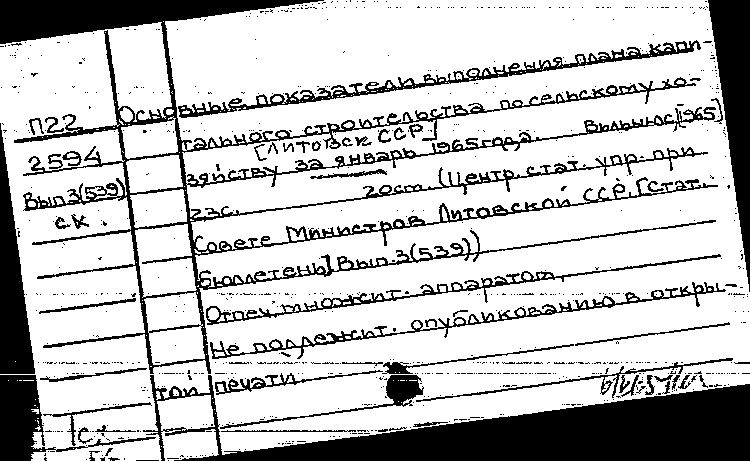 Основные показатели выполнения плана капи-
П22
тального строительства по сельскому хо-
2594
[Литовск ССР]
зяйству за январь 1965 года. Вильнюс, [1965]
Вып 3(539)
23с. 20см. (Центр. стат. упр. при
ск.
Совете Министров Литовской ССР. [Стат.
бюллетень] Вып. 3(539))
Отпеч. множит. аппаратом,
Не подлежит. опубликованию в откры-
той печати.
1с: